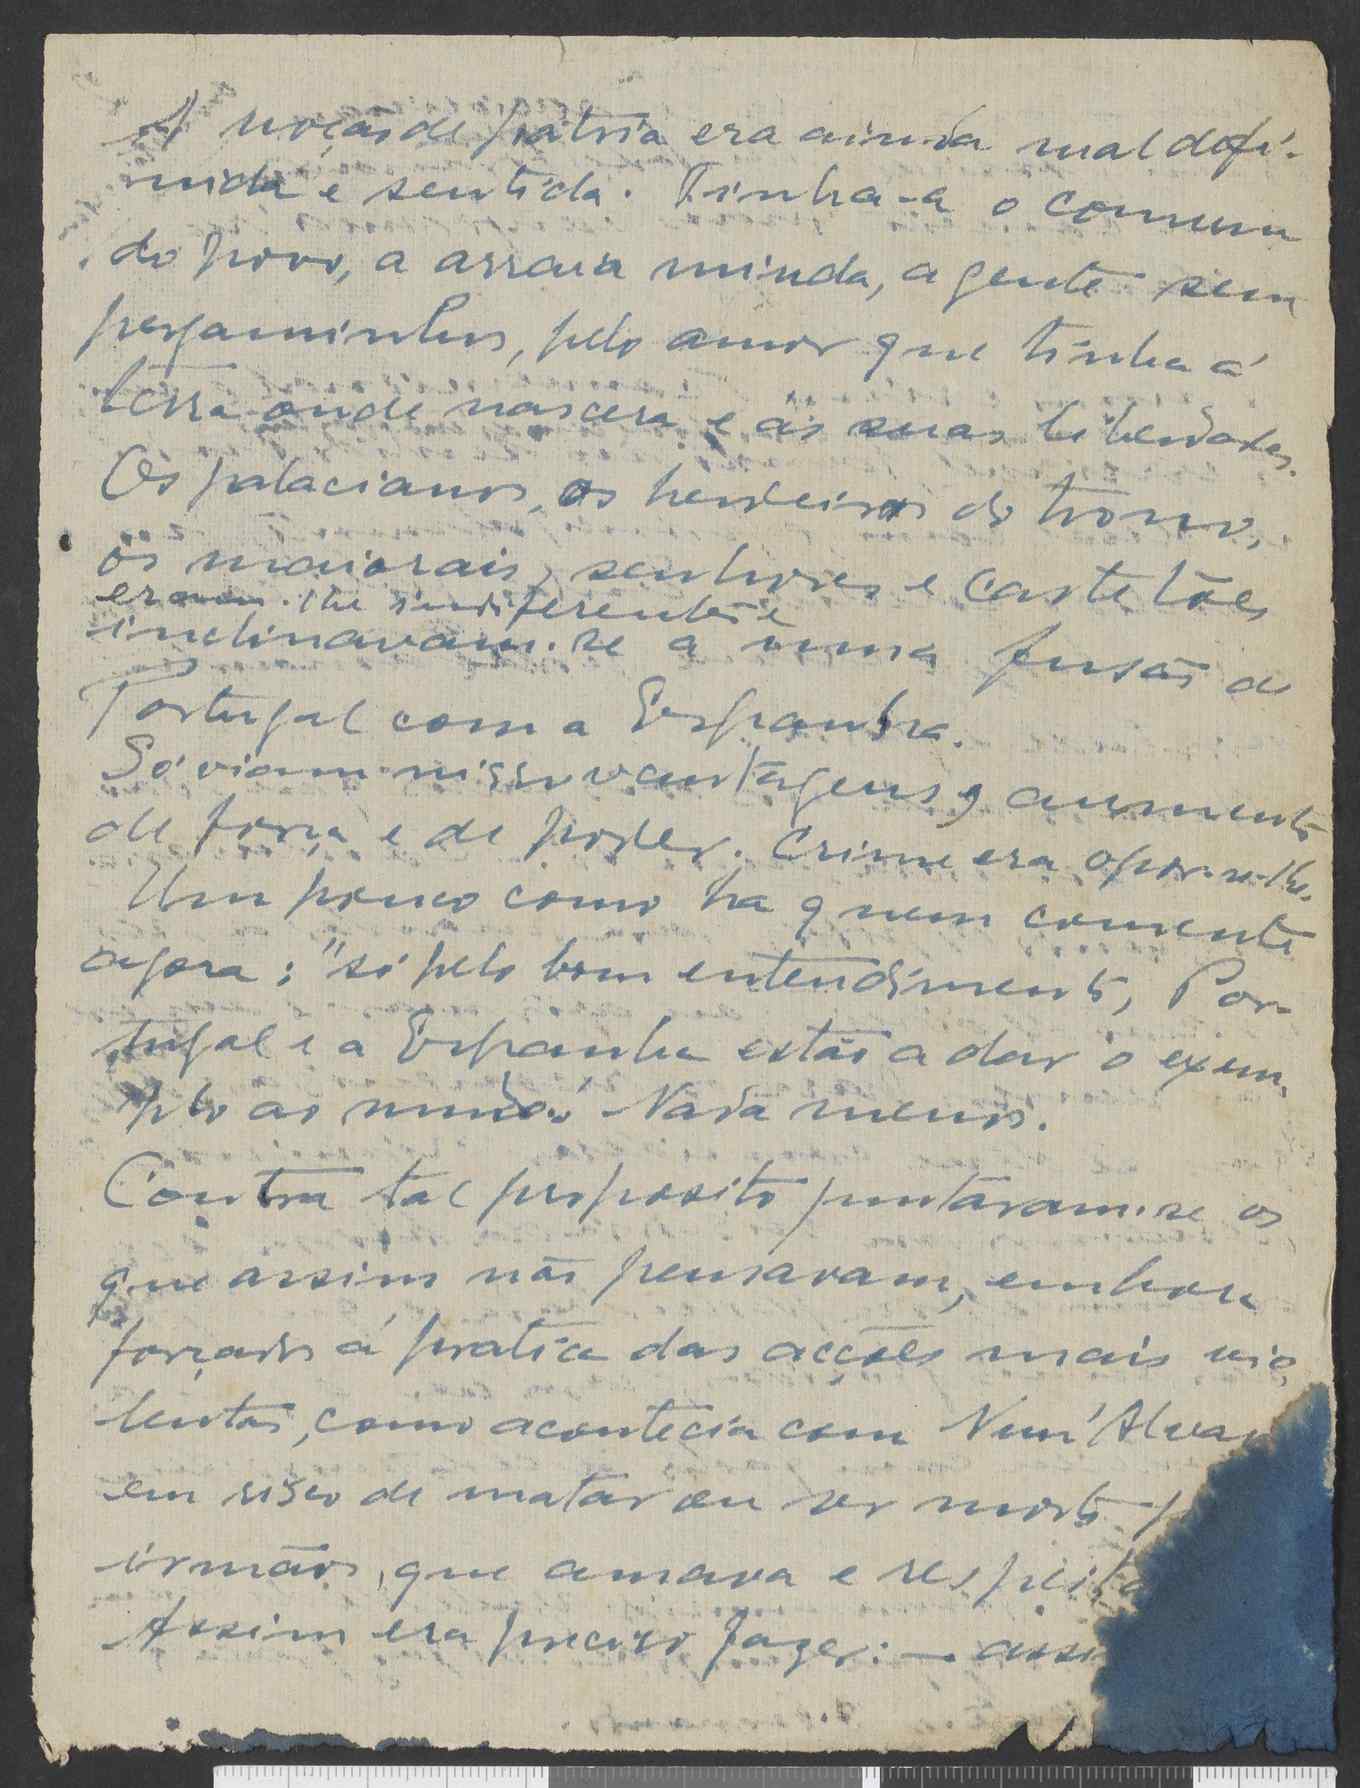 A noção de pátria era ainda mal defi-
nida e sentida. Tinha-a o comum
do povo, a arraia miuda, a gente sem
pergaminhos, pelo amor que tinha á
terra onde nascera e ás suas liberdades.
Os palacianos, os herdeiros do trono,
os maiorais, senhores e castelões
eram-lhe indiferentes e
inclinavam-se a uma fusão de
Portugal com a Espanha.
Só viam nisso vantagens, aumento
de força e de poder. Crime era opor-se-lhe.
Um pouco como ha quem comente
agora: "só pelo bom entendimento, Por-
tugal e a Espanha estão a dar o exem-
plo ao mundo." Nada menos.
Contra tal proposito juntaram-se os
que assim não pensavam, embora
forçados á pratica das acções mais vio-
lentas, como acontecia com Nun'Alvar
em risco de matar ou ser morto p
irmãos, que amava e respeita
Assim era preciso fazer: — assi